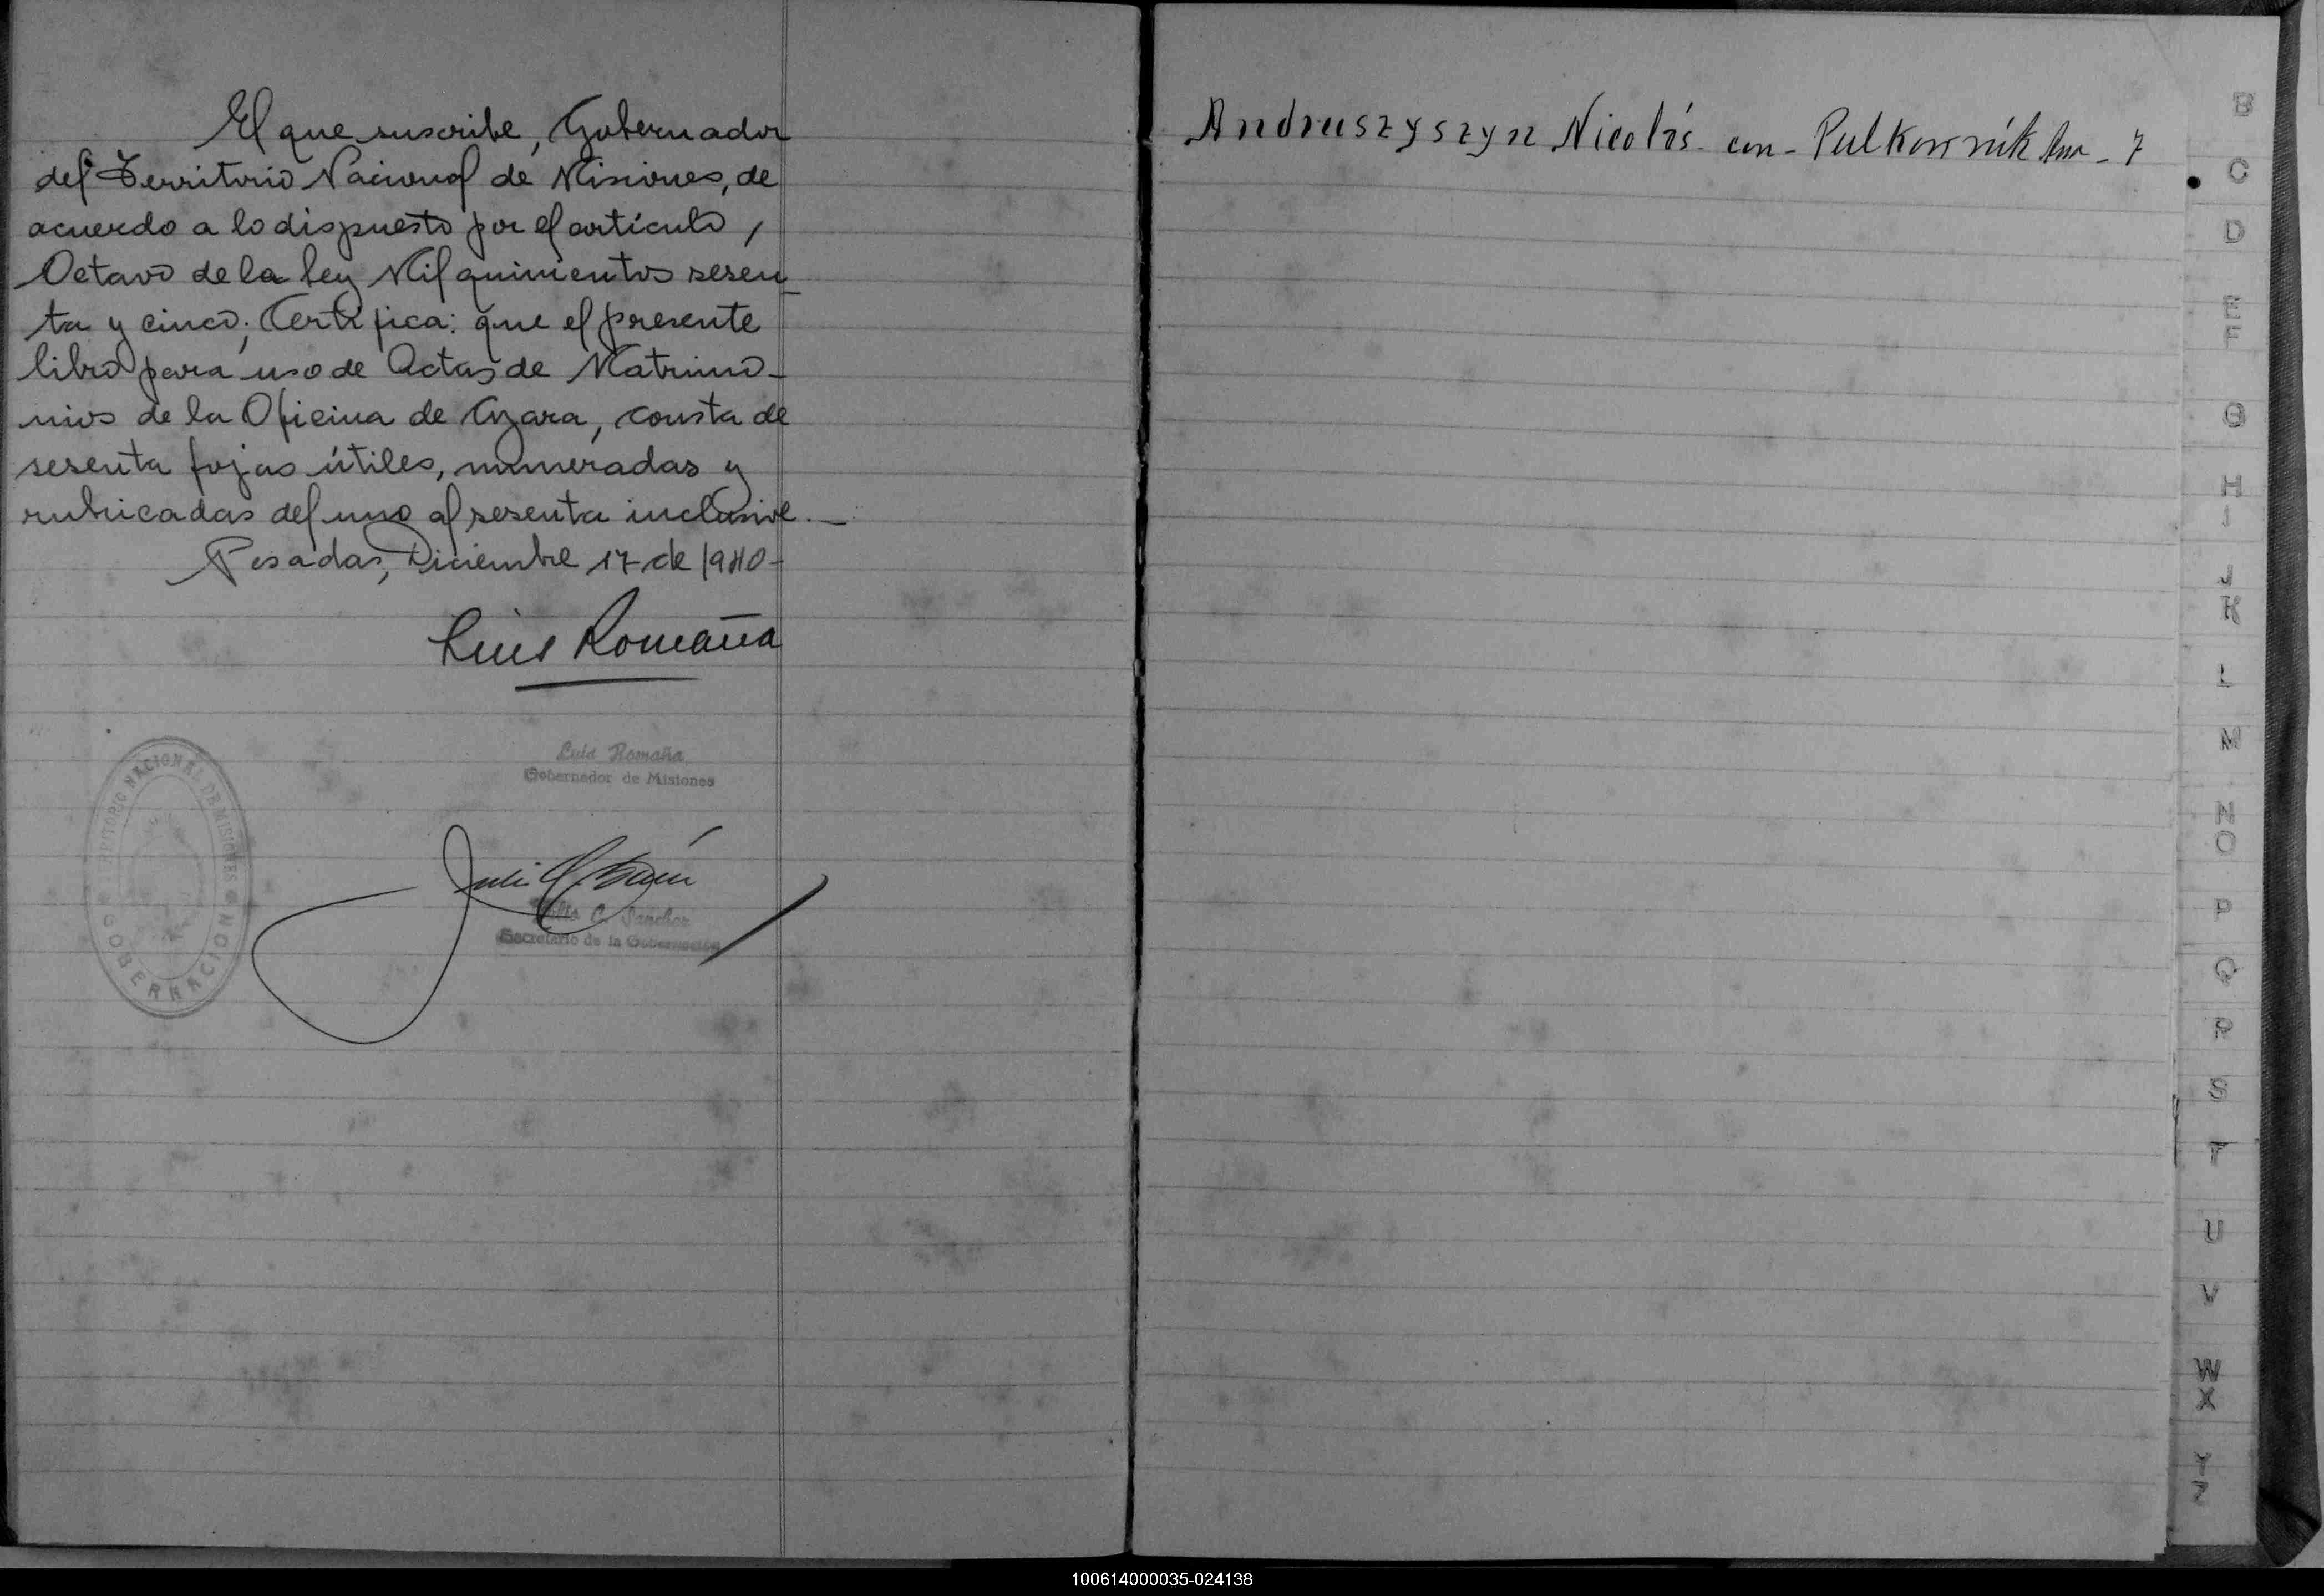 El que suscribe, Gobernador
del Territorio Nacional de Misiones, de
acuerdo a lo dispuesto por el artículo
Octavo de la ley Mil quinientos sesen-
ta y cinco; Certifica: que el presente
libro para uso de Actas de Matrimo-
nios de la Oficina de Azara, consta de
sesenta fojas útiles, numeradas y
rubricadas del uno al sesenta inclusive.—
Posadas, Diciembre 17 de 1940-
Luis Romaña
Luis Romaña
Gobernador de Misiones
TERRITORIO NACIONAL DE MISIONES
GOBERNACION
Julio C. Sanchez
Secretario de la Gobernación
Andruszyszyn Nicolás - con - Pulkownik - 7
B
C
D
E
F
G
H
I
J
K
L
M
N
O
P
Q
R
S
T
U
V
W
X
Y
Z
100614000035-024138